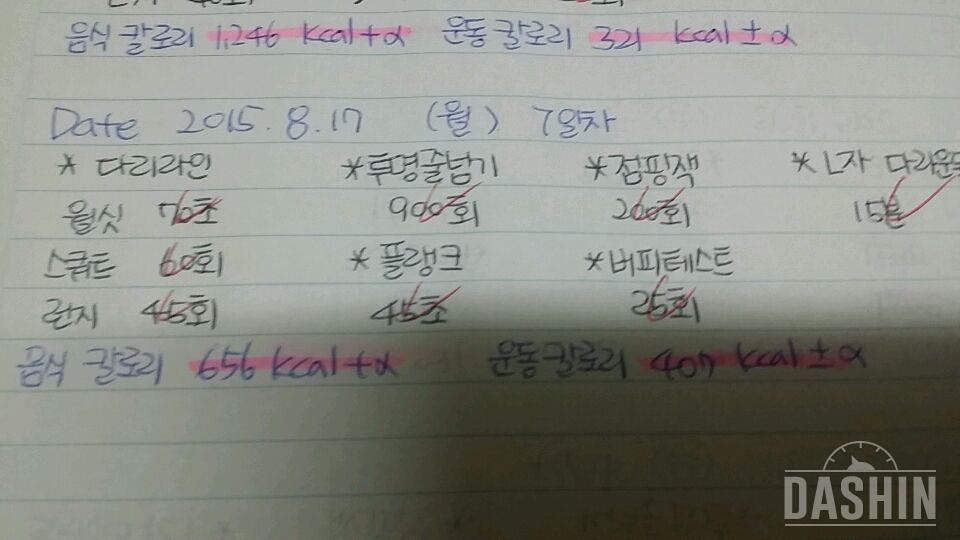 음식 칼로리 1,246 kcal+α 운동 칼로리 321 kcal±α
Date 2015. 8. 17 (월) 7일차
* 다리라인 *투명줄넘기 *점핑잭 *L자 다리운동
월싯 70초 900회 200회 15분
스쿼트 60회 *플랭크 *버피테스트
런지 45회 45초 25회
음식 칼로리 656 kcal+α 운동칼로리 407 kcal±α
DASHIN